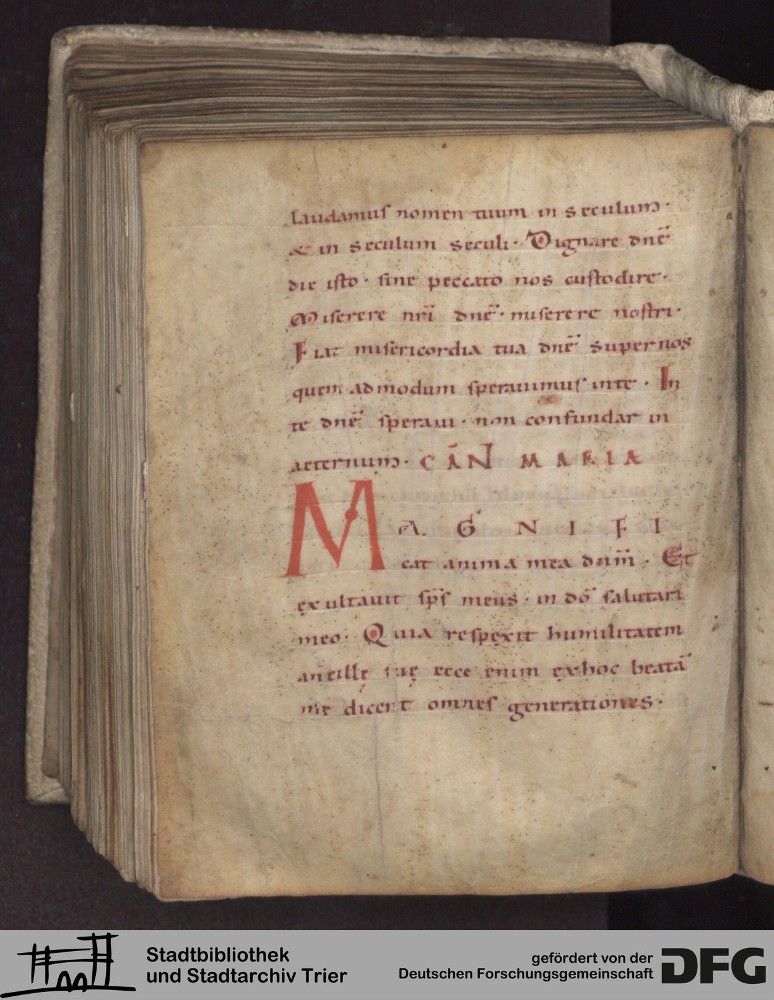 laudamus nomen tuum in seculum·
& in seculum seculi· Dignare dnē
die isto· sine peccato nos custodire·
Miserere nrī dnē· miserere nostri·
Fiat misericordia tua dnē super nos
quem admodum sperauimus inte· In
te dnē speraui· non confundar in
aeternum· CĀN MARIA
MAGNIFI
cat anima mea dnm̄· Et
exultauit sps̄ meus· in dō salutari
meo· Quia respexit humilitatem
ancillę suę ecce enim exhoc beatā
me dicent omnes generationes·
Stadtbibliothek
und Stadtarchiv Trier
gefördert von der
Deutschen Forschungsgemeinschaft
DFG